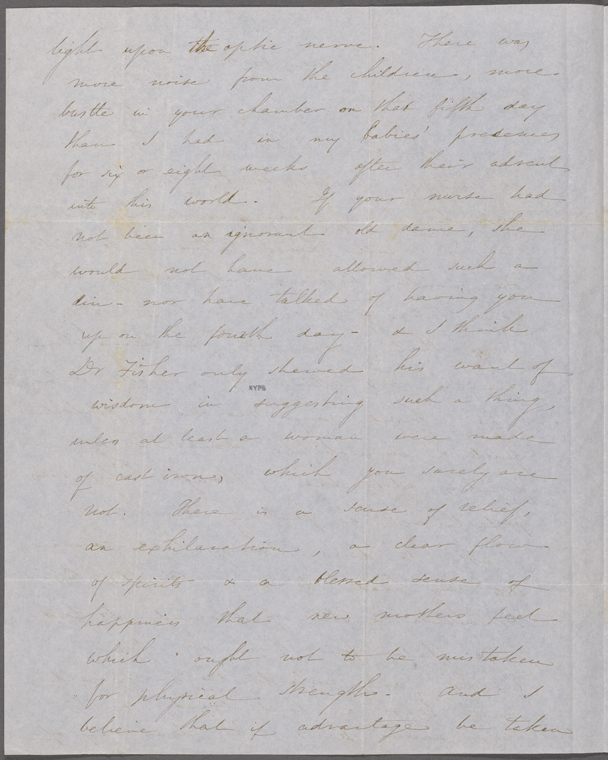 light upon the optic nerve. There was
more noise from the children, more
bustle in your chamber on that fifth day
than I had in my babies' presences
for six or eight weeks after their advent
into this world. If your nurse had
not been an ignorant old dame, she
would not have allowed such a
din - nor have talked of having you
up on the fourth day - & I think
Dr Fisher only shewed his want of
NYPL
wisdom in suggesting such a thing,
unless at least a woman were made
of cast iron, which you surely are
not. There is a sense of relief,
an exhilaration, a clear flow
of spirits & a blessed sense of
happiness that new mothers feel
which ought not to be mistaken
for physical strength. And I
believe that if advantage be taken